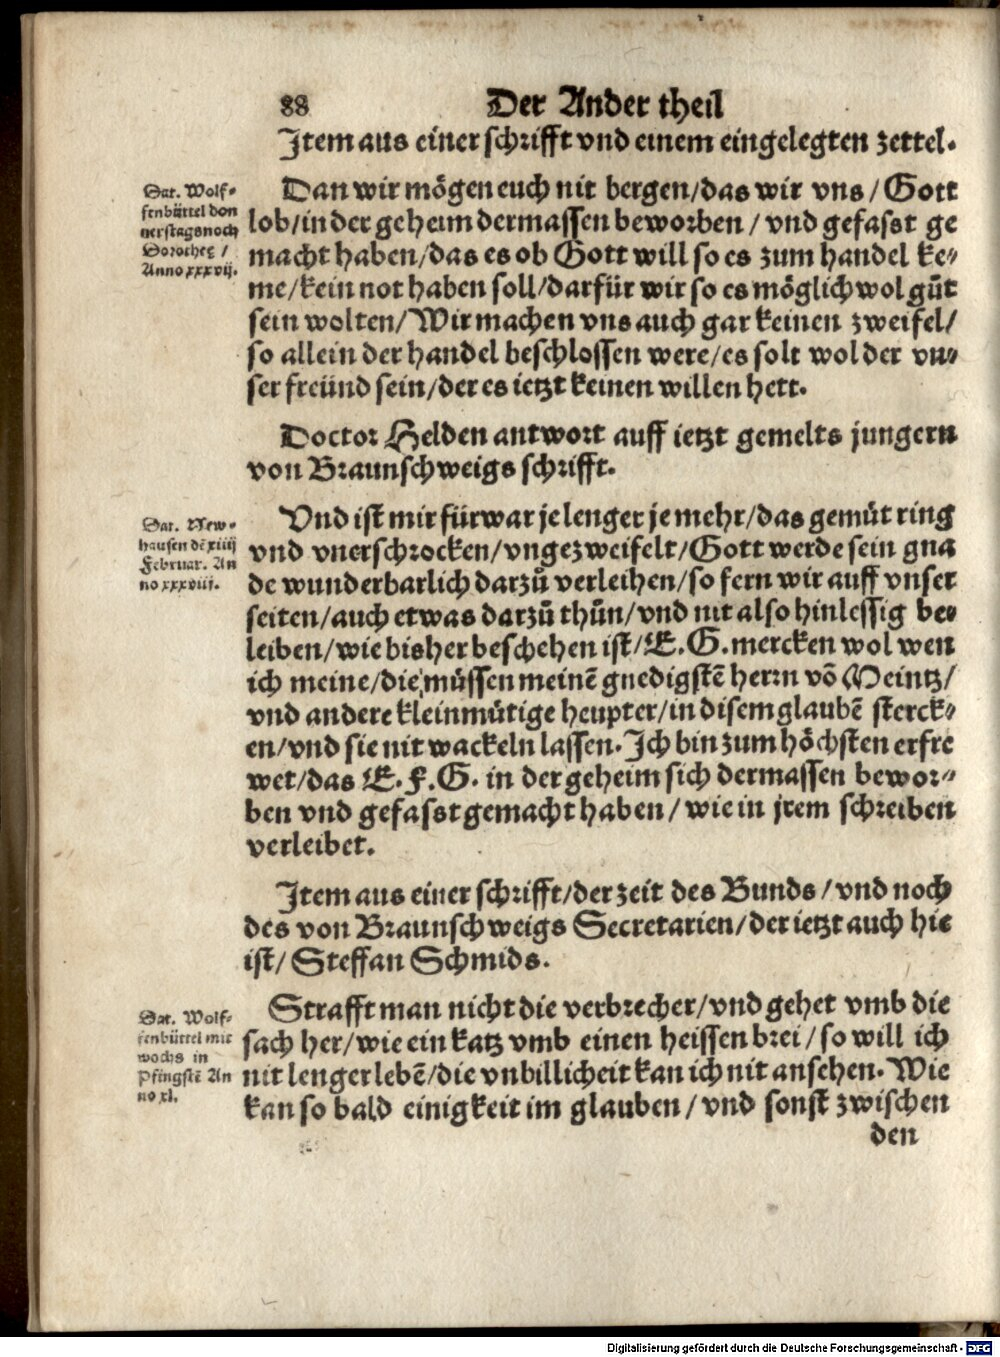 88 Der Ander theil
Item aus einer schrifft vnd einem eingelegten zettel.
Dat. Wolf-
fenbüttel don
nerstags noch
Dorothee /
Anno xxxvij.
Dan wir mögen euch nit bergen/das wir vns / Gott
lob/in der geheim dermassen beworben / vnd gefasst ge
macht haben/das es ob Gott will so es zum handel ke-
me/kein not haben soll/darfür wir so es möglich wol gůt
sein wolten/Wir machen vns auch gar keinen zweifel/
so allein der handel beschlossen were/es solt wol der vn-
ser freünd sein/der es ietzt keinen willen hett.
Doctor Helden antwort auff ietzt gemelts jungern
von Braunschweigs schrifft.
Dat. New-
hausen dē xiiij
Februar. An
no xxxviij.
Vnd ist mir fürwar je lenger je mehr/das gemüt ring
vnd vnerschrocken/vngezweifelt/Gott werde sein gna
de wunderbarlich darzů verleihen/so fern wir auff vnser
seiten/auch etwas darzů thůn/vnd nit also hinlessig be-
leiben/wie bisher beschehen ist/E. G. mercken wol wen
ich meine/die müssen meinē gnedigstē herrn vō Meintz/
vnd andere kleinmütige heupter/in disem glaubē sterck-
en/vnd sie nit wackeln lassen. Ich bin zum höchsten erfre
wet/das E. F. G. in der geheim sich dermassen bewor-
ben vnd gefasst gemacht haben / wie in jrem schreiben
verleibet.
Item aus einer schrifft/der zeit des Bunds / vnd noch
des von Braunschweigs Secretarien/der ietzt auch hie
ist/ Steffan Schmids.
Dat. Wolf-
fenbüttel mit
wochs in
Pfingstē An
no xl.
Strafft man nicht die verbrecher/vnd gehet vmb die
sach her/wie ein katz vmb einen heissen brei / so will ich
nit lenger lebē/die vnbillicheit kan ich nit ansehen. Wie
kan so bald einigkeit im glauben / vnd sonst zwischen
den
Digitalisierung gefördert durch die Deutsche Forschungsgemeinschaft - DFG